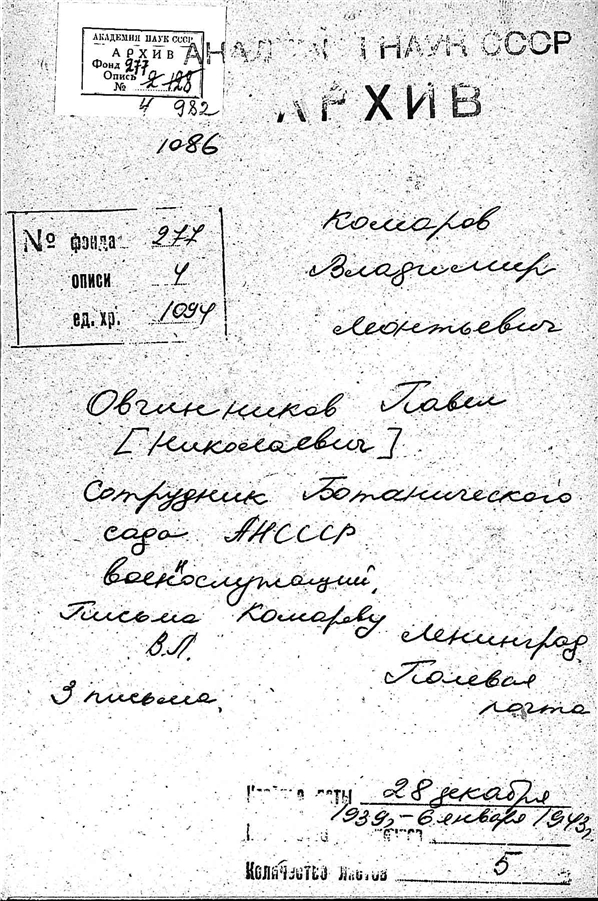 АКАДЕМИЯ НАУК СССР
АРХИВ
Фонд 277
Опись 2
№ 128
4 982
1086
НАУК СССР
АРХИВ
№ фонда 277
описи 4
ед. хр. 1094
Комаров
Владимир
Леонтьевич
Овчинников Павел
[Николаевич]
Сотрудник Ботанического
сада АНСССР
военнослужащий,
Письма Комарову
В.Л.
Ленинград
Полевая
почта
3 письма,
даты 28 декабря
1939г.-6 января 1943г.
Количество листов 5